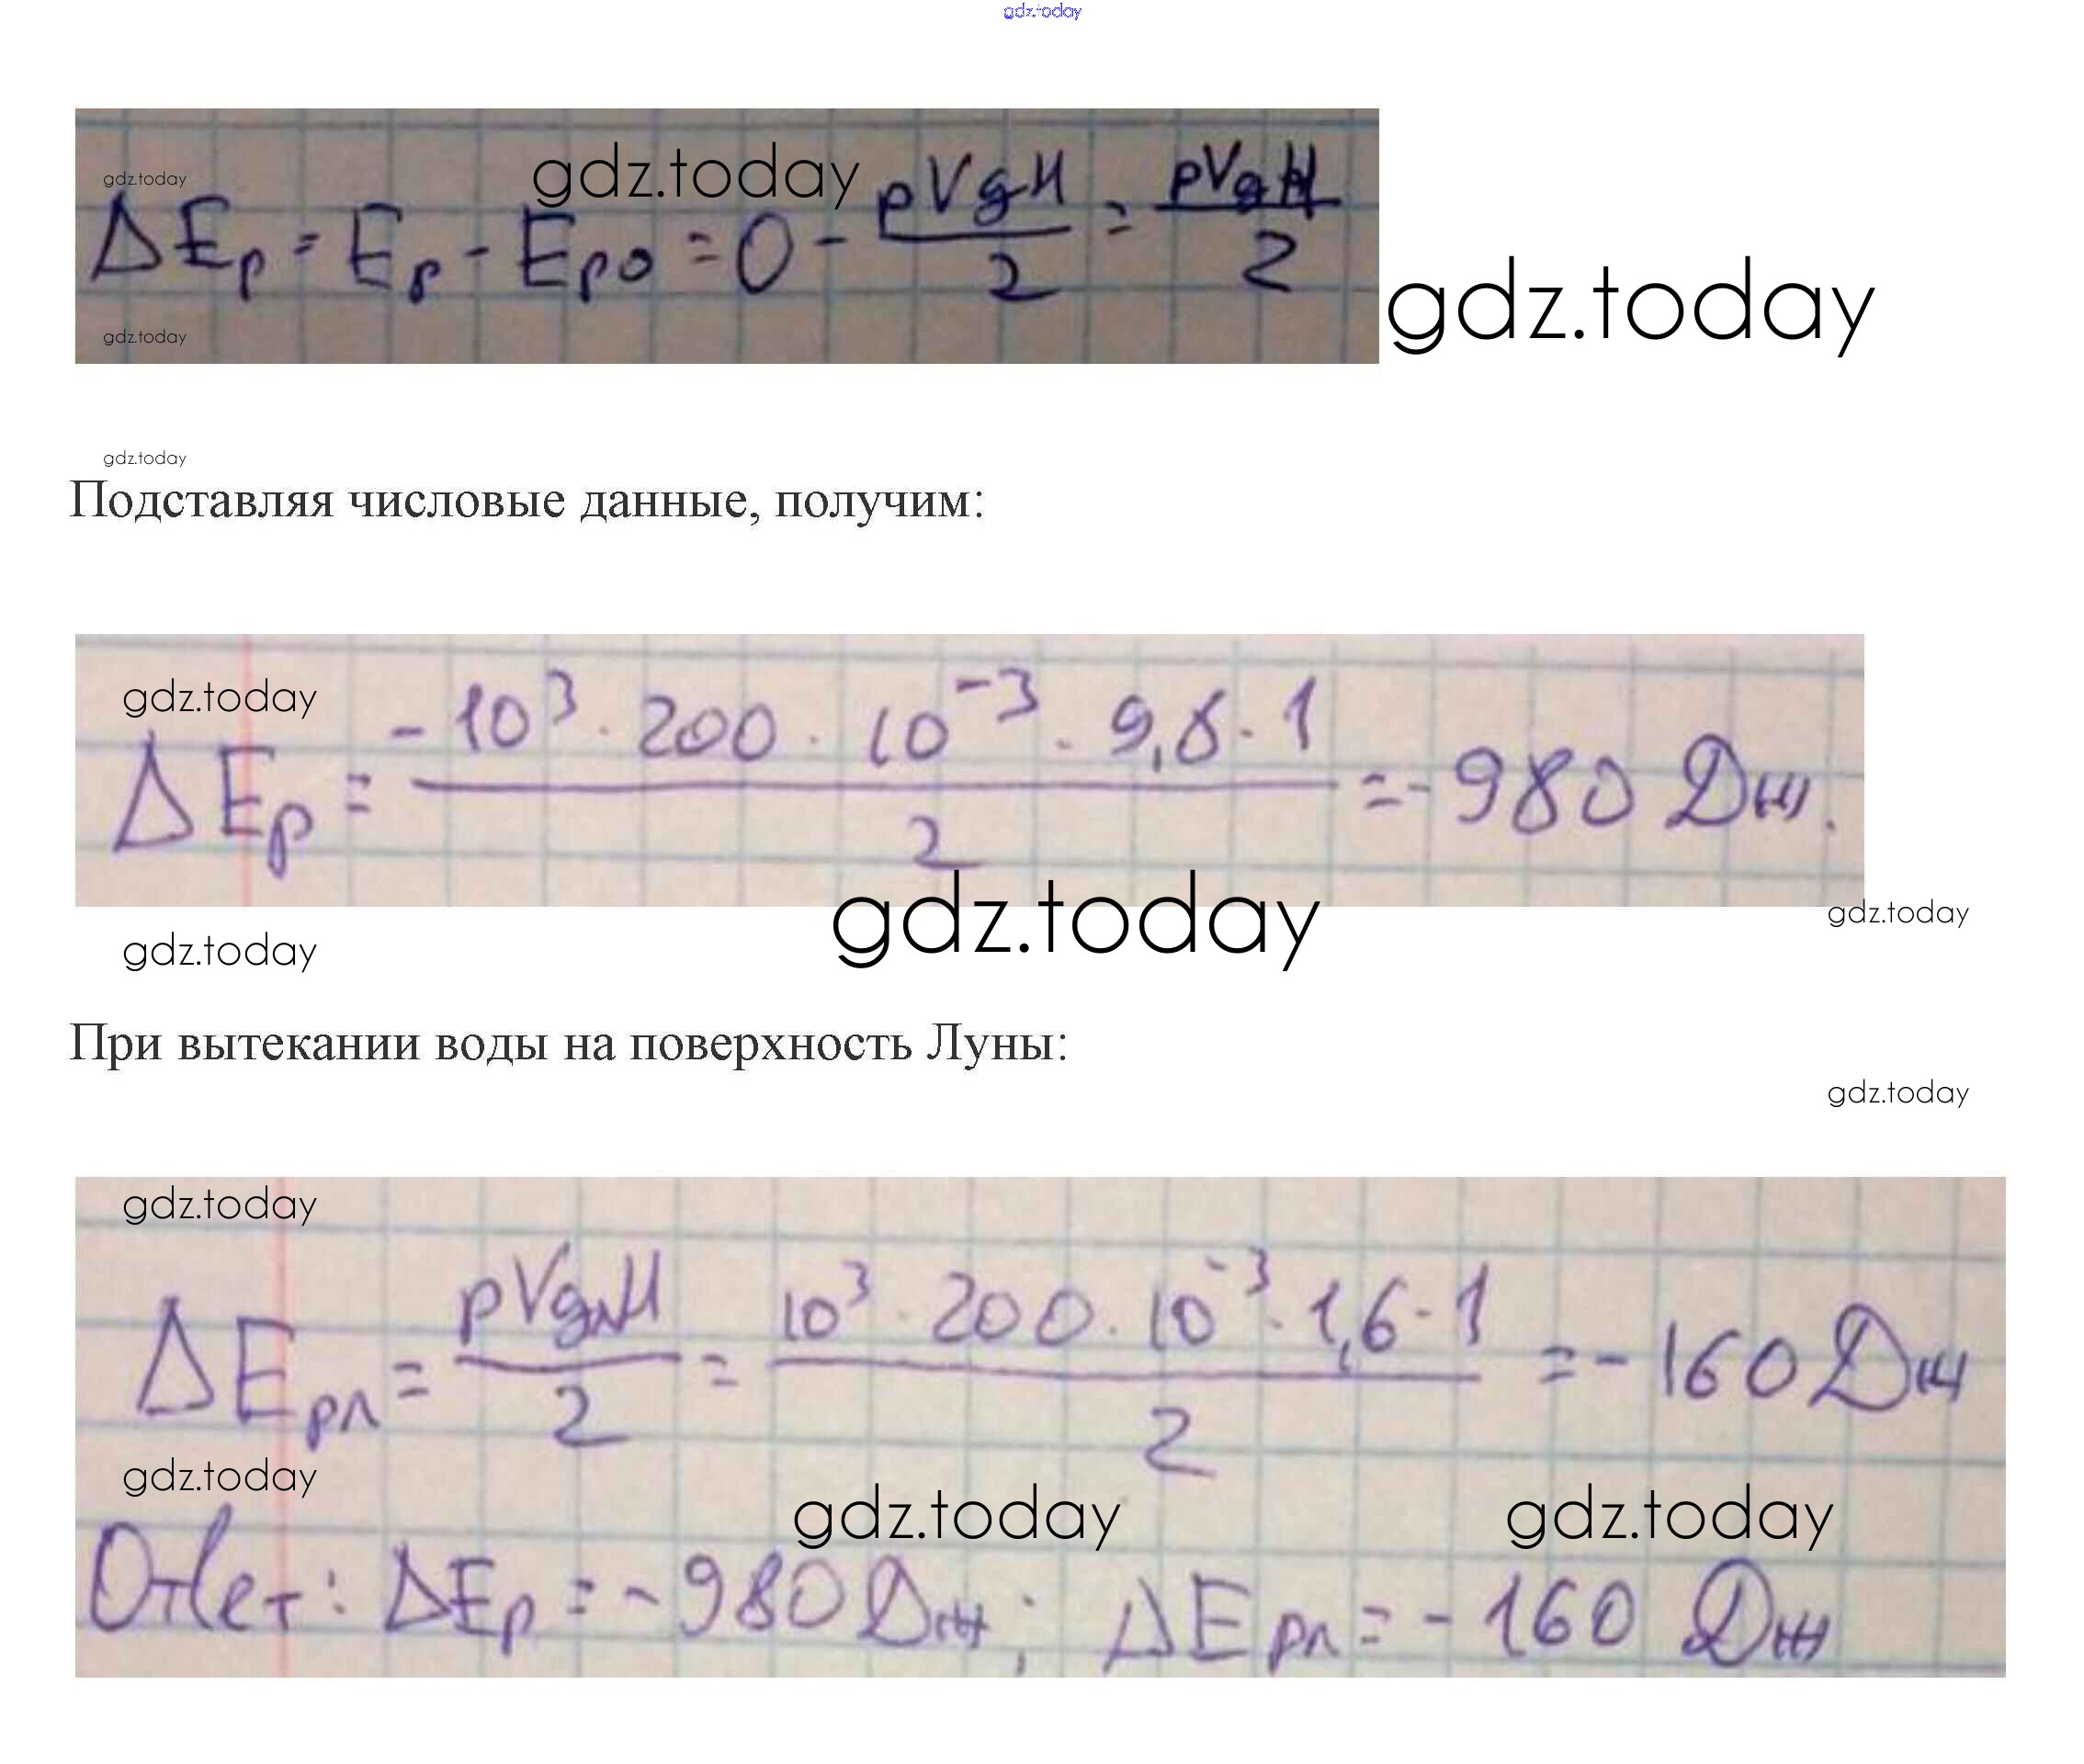 gdz.today
gdz.today
gdz.today
ΔEp = Ep - Ep0 = 0 - pVgH/2 = pVgH/2
gdz.today
gdz.today
gdz.today
Подставляя числовые данные, получим:
gdz.today
ΔEp = -10³ · 200 · 10⁻³ · 9,8 · 1 / 2 = -980 Дж.
gdz.today
gdz.today
gdz.today
При вытекании воды на поверхность Луны:
gdz.today
gdz.today
ΔEpл = pVgлH/2 = 10³ · 200 · 10⁻³ · 1,6 · 1 / 2 = -160 Дж
gdz.today
gdz.today
gdz.today
Ответ: ΔEp = -980 Дж; ΔEpл = -160 Дж